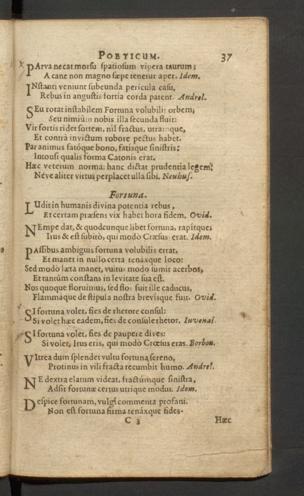 POETICUM. 37
PArva necat morsu spatiosum vipera taurum;
A cane non magno sæpe tenetur aper. Idem.
INstanti veniunt subeunda pericula casu,
Rebus in angustis fortia corda patent. Andrel.
SEu rotat instabilem Fortuna volubili orbem,
Seu nimiùm nobis illa secunda fluit:
Vir fortis ridet sortem, nil fractus, utramque,
Et contra invictum robore pectus habet.
Par animus fatóque bono, fatisque sinistris;
Intonsi qualis forma Catonis erat.
Hæc veterum norma: hanc dictat prudentia legem,
Néve aliter virtus perplacet ulla sibi. Neuhus.
Fortuna.
LUdit in humanis divina potentia rebus,
Et certam præsens vix habet hora fidem. Ovid.
NEmpe dat, & quodcunque libet fortuna, rapitque;
Irus & est subitò, qui modo Crœsus erat. Idem.
PAssibus ambiguis fortuna volubilis errat,
Et manet in nullo certa tenáxque loco:
Sed modo læta manet, vultus modo sumit acerbos,
Et tantùm constans in levitate sua est.
Nos quoque floruimus, sed flos suit ille caducus,
Flammáque de stipula nostra brevisque fuit. Ovid.
SI fortuna volet, fies de rhetore consul:
Si volet hæc eadem, fies de consule rhetor. Iuvenal.
SI fortuna volet, fies de paupere dives:
Si volet, Irus eris, qui modo Crœsus eras. Borbon.
VItrea dum splendet vultu fortuna, sereno,
Protinus in vili fracta recumbit humo. Andrel.
NE dextra elatum videat, fractúmque sinistra,
Adsit fortunæ certus utrique modus. Idem.
DEspice fortunam, vulgi commenta profani.
Non est fortuna firma tenáxque fides.
C 3 Hæc